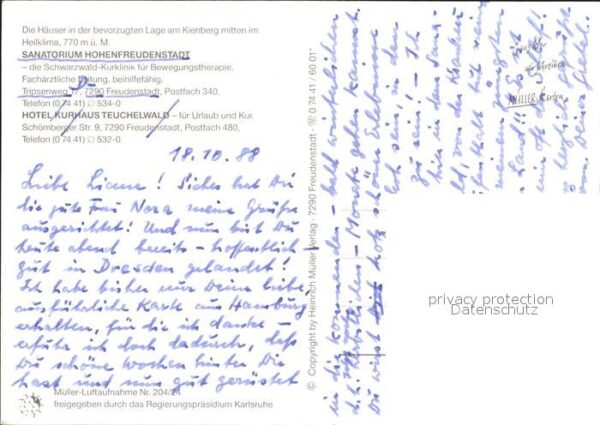 Die Häuser in der bevorzugten Lage am Kienberg mitten im
Heilklima, 770 m ü. M.
SANATORIUM HOHENFREUDENSTADT
– die Schwarzwald-Kurklinik für Bewegungstherapie.
Fachärztliche Leitung, beihilfefähig.
Tripsenweg 17, 7290 Freudenstadt, Postfach 340,
Telefon (0 74 41) 534-0
HOTEL KURHAUS TEUCHELWALD – für Urlaub und Kur.
Schömberger Str. 9, 7290 Freudenstadt, Postfach 480,
Telefon (0 74 41) 532-0
18.10.88
Liebe Liane! Sicher hat Dir
die gute Frau Nora meine Grüße
ausgerichtet! Und nun bist Du
heute abend bereits – hoffentlich
gut in Dresden gelandet!
Ich habe bisher nur Deine liebe,
ausführliche Karte aus Hamburg
erhalten, für die ich danke –
erfuhr ich doch dadurch, daß
Du schöne Wochen hinter Dir
hast und nun gut gerüstet
Müller-Luftaufnahme Nr. 204/24
freigegeben durch das Regierungspräsidium Karlsruhe
© Copyright by Heinrich Müller Verlag · 7290 Freudenstadt · ☏ 0 74 41 / 60 01
in die kommenden – bald winterlichen
d.h. herbstlichen – Monate gehen kannst.
Du wirst trotz schöner Erlebnisse
froh sein, in den
zu sein! – Ich
bin in der Sana-
von der Kranken
meinen
Land!
oft
herzlich gegrüßt
von Deiner
MÜLLER Karten
privacy protection
Datenschutz